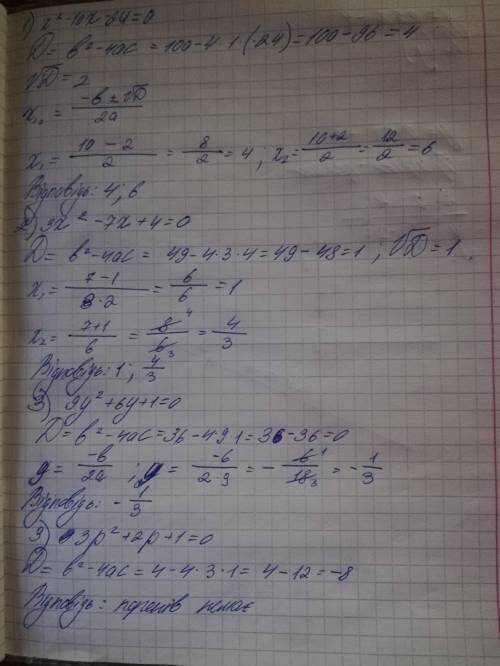 1) x² - 10x 24 = 0
D = b² - 4ac = 100 - 4 · 1 (-24) = 100 - 96 = 4
√D = 2
x₁,₂ = (-b ± √D)/2a
x₁ = (10 - 2)/2 = 8/2 = 4, x₂ = (10+2)/2 = 12/2 = 6
Відповідь: 4; 6
2) 3x² - 7x + 4 = 0
D = b² - 4ac = 49 - 4 · 3 · 4 = 49 - 48 = 1; √D = 1
x₁ = (7 - 1)/(3 · 2) = 6/6 = 1
x₂ = (7+1)/6 = 8 4/6 3 = 4/3
Відповідь: 1; 4/3
3) 9y² + 6y + 1 = 0
D = b² - 4ac = 36 - 4 9 1 = 36 - 36 = 0
y = -b/2a; y = -6/(2 9) = - 6 1/18 3 = - 1/3
Відповідь: - 1/3
9) 3p² + 2p + 1 = 0
D = b² - 4ac = 4 - 4 · 3 · 1 = 4 - 12 = -8
Відповідь: немає